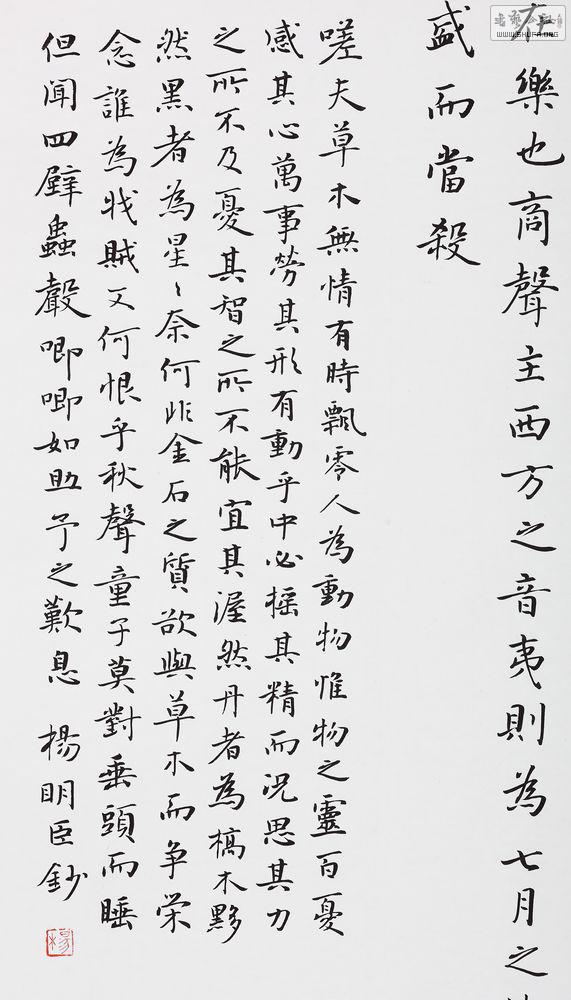 樂也商聲主西方之音夷則為七月之
盛而當殺
嗟夫草木無情有時飄零人為動物惟物之靈百憂
感其心萬事勞其形有動乎中必搖其精而況思其力
之所不及憂其智之所不能宜其渥然丹者為槁木黟
然黑者為星〻奈何非金石之質欲與草木而争榮
念誰為戕賊又何恨乎秋聲童子莫對垂頭而睡
但闻四壁蟲聲唧唧如助予之歎息 楊明臣鈔
楊
WWW.SHUFA.ORG